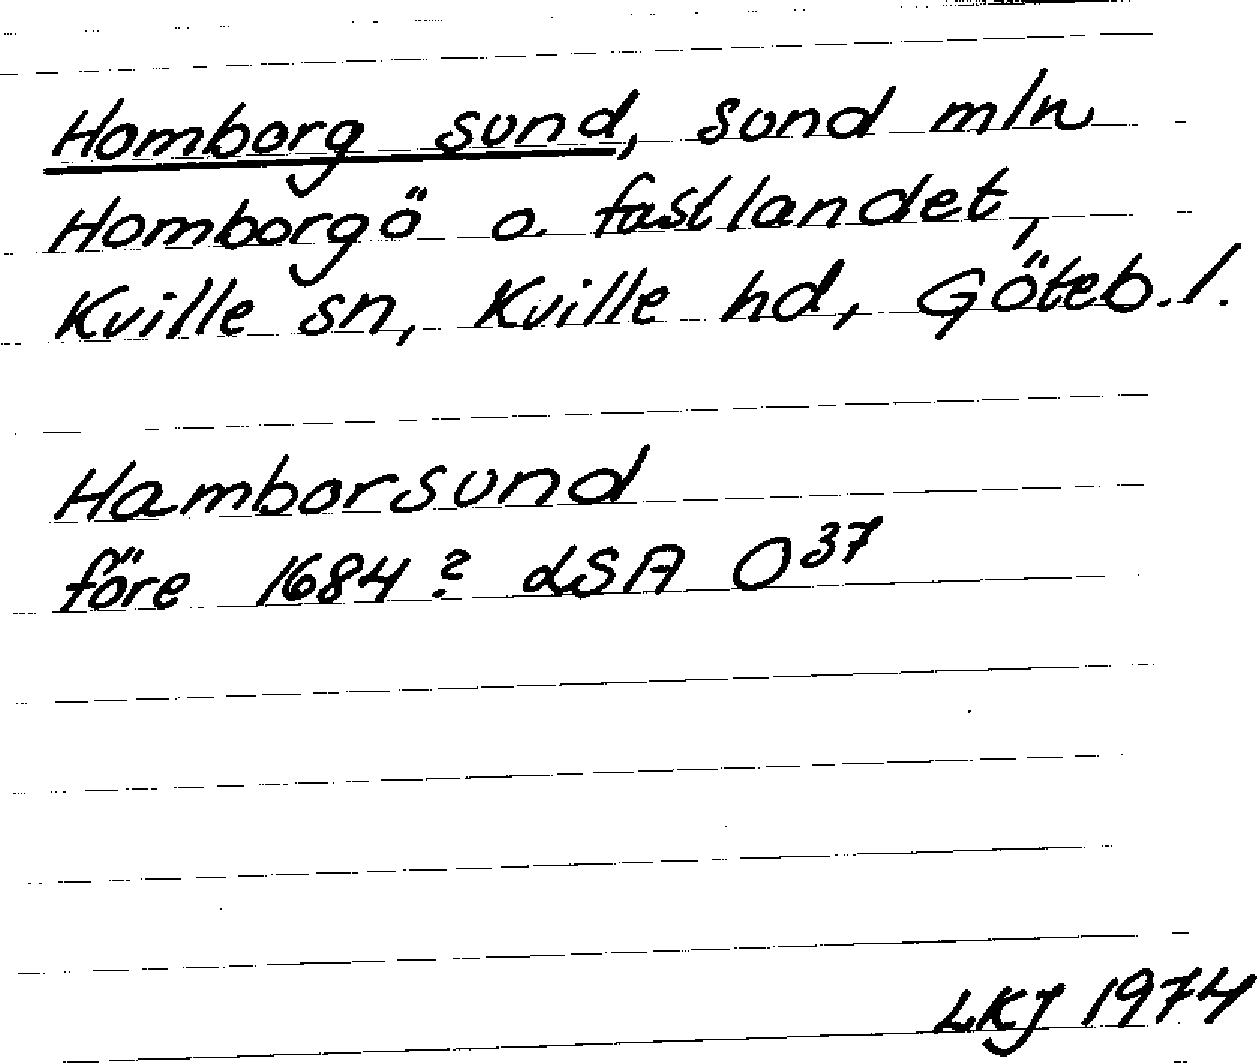 Homborg sund, sund mln
Homborgö o. fastlandet,
Kville sn, Kville hd, Göteb. l.
Hamborsund
före 1684? LSA O37
LKJ 1974